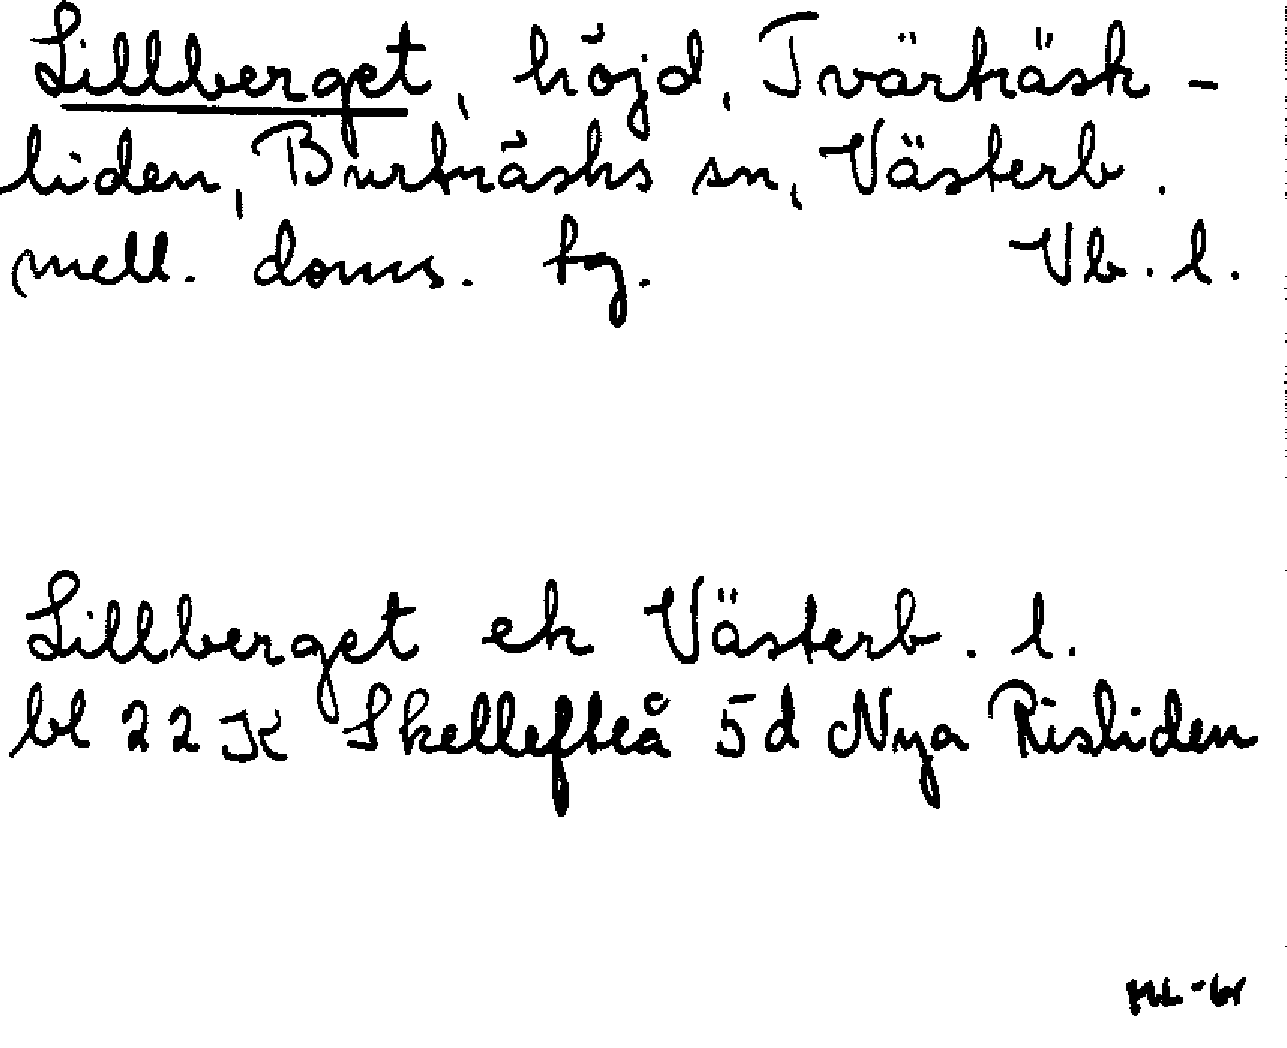 Lillberget, höjd, Tvärträsk-
liden, Burträsks sn, Västerb.
mell. doms. tg. Vb. l.
Lillberget ek Västerb. l.
bl 22 K Skellefteå 5d Nya Risliden